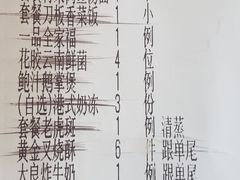 套餐方板香菜饭 1 小
一品全家福 1 例
花胶云南鲜菌 4 位
鲍汁鹅掌煲 1 例
(自选)港式奶冻 3 份
套餐老虎斑 1 例 清蒸
黄金叉烧酥 6 件 跟单尾
大良炸牛奶 1 例 跟单尾